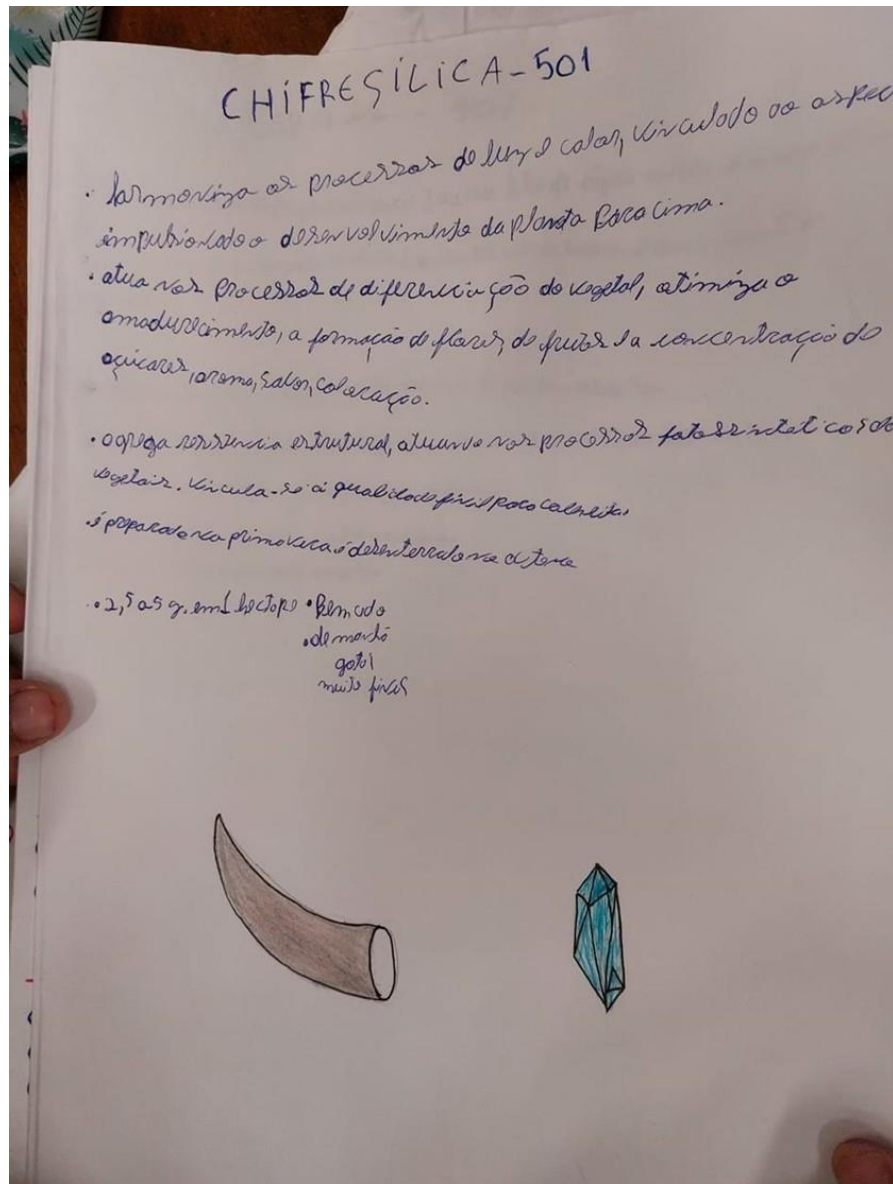 CHIFRESÍLICA-501
• harmoniza os processos de luz e calor, vinculado ao aspec
impulsionado o desenvolvimento da planta para cima.
• atua nos processos de diferenciação do vegetal, otimiza o
amadurecimento, a formação de flores, de frutos e a concentração de
açúcares, aroma, sabor, colocação.
• agrega resistencia estrutural, atuando nos processos fotossinteticos do
vegetais. Vincula-se a qualidade final para colheita,
• é preparado na primavera, é desenterrado no
• 2,5 a 5 g. em 1 hectare • Bem cedo
• de manhã
muito finas